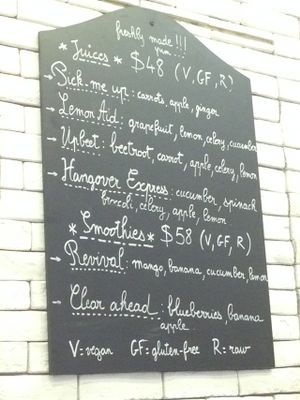 freshly made !!!
yum
* Juices * $48 (V, GF, R)
Pick-me up: carrots, apple, ginger
Lemon Aid: grapefruit, lemon, celery, cucumber
Upbeet: beetroot, carrot, apple, celery, lemon
Hangover Express: cucumber, spinach
brocoli, celery, apple, lemon
* Smoothies * $58 (V, GF, R)
Revival: mango, banana, cucumber, lemon
Clear ahead: blueberries, banana
apple
V=vegan GF=gluten-free R=raw